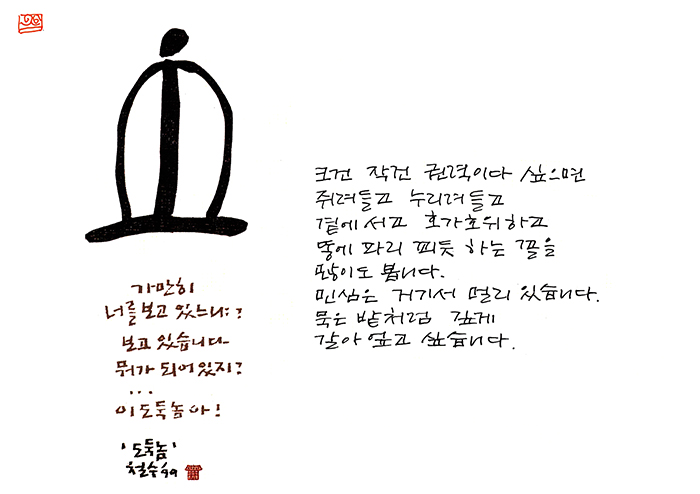 가만히
너를 보고 있느냐?
보고 있습니다
뭐가 되어 있지?
...
이 도둑놈아!
'도둑놈'
철수 '99
크건 작건 권력이다 싶으면
쥐려들고 누리려들고
곁에 서고 호가호위하고
똥에 파리 꾀듯 하는 꼴을
많이도 봅니다.
민심은 거기서 멀리 있습니다.
묵은 밭처럼 깊게
갈아 엎고 싶습니다.